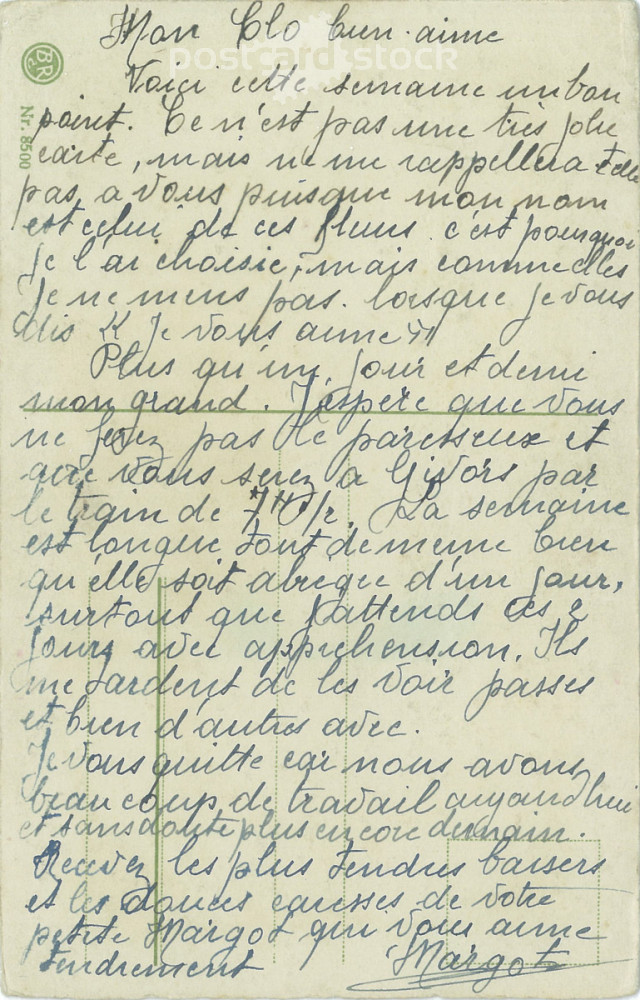 Mon Clo bien-aimé
postcard stock
BR
Nr. 8500
Voici cette semaine un bon
point. Ce n'est pas une très jolie
carte, mais ne me rappellera t'elle
pas, a vous puisque mon nom
est celui de ces fleurs. c'est pourquoi
je l'ai choisie, mais comme elles
je ne mens pas. lorsque je vous
dis "Je vous aime"
Plus qu'un jour et demi
mon grand. J'espère que vous
ne ferez pas le paresseux et
que vous serez a Givors par
le train de 7H 1/2. La semaine
est longue tout de meme bien
qu'elle soit abregée d'un jour,
surtout que j'attends ces 2
jours avec appréhension. Ils
me tardent de les voir passes
et bien d'autres avec.
Je vous quitte car nous avons
beaucoup de travail aujourd'hui
et sans doute plus encore demain.
Recevez les plus tendres baisers
et les douces caresses de votre
petite Margot qui vous aime
tendrement Margot